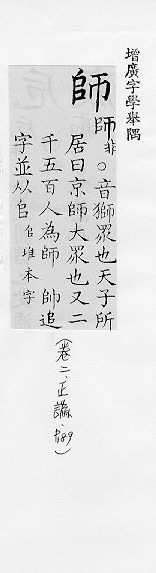 增廣字學舉隅
師師非○音獅眾也天子所
居曰京師大眾也又二
千五百人為師 帥追
字並从𠂤𠂤堆本字
(卷二、正譌、